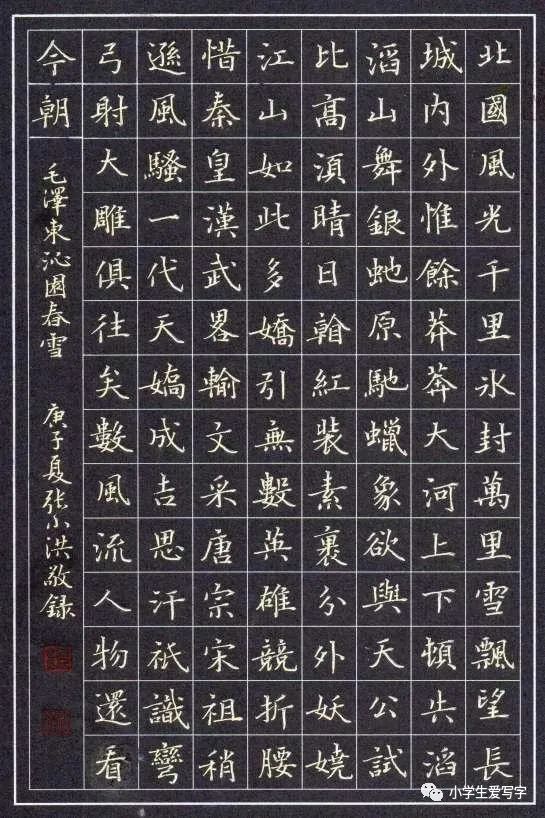 北國風光千里氷封萬里雪飄望長
城內外惟餘莽莽大河上下頓失滔
滔山舞銀虵原馳蠟象欲與天公試
比髙湏晴日翰紅裝素裹分外妖嬈
江山如此多嬌引無數英雄競折腰
惜秦皇漢武畧輸文采唐宗宋祖稍
遜風騷一代天嬌成吉思汗祇識彎
弓射大雕俱往矣數風流人物還看
今朝
毛澤東沁園春雪 庚子夏張小洪敬錄
小学生爱写字